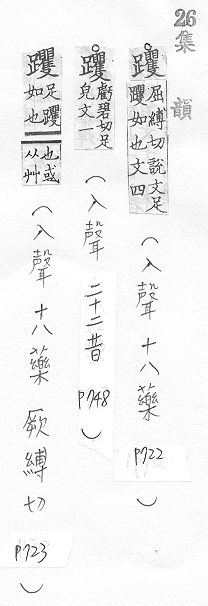 26集韻
○躩屈縛切說文足躩如也文四(入聲十八藥P722)
○躩虧碧切足皃文一(入聲二十二昔P748)
躩足躩如也也或从艸(入聲十八藥厥縛切P723)